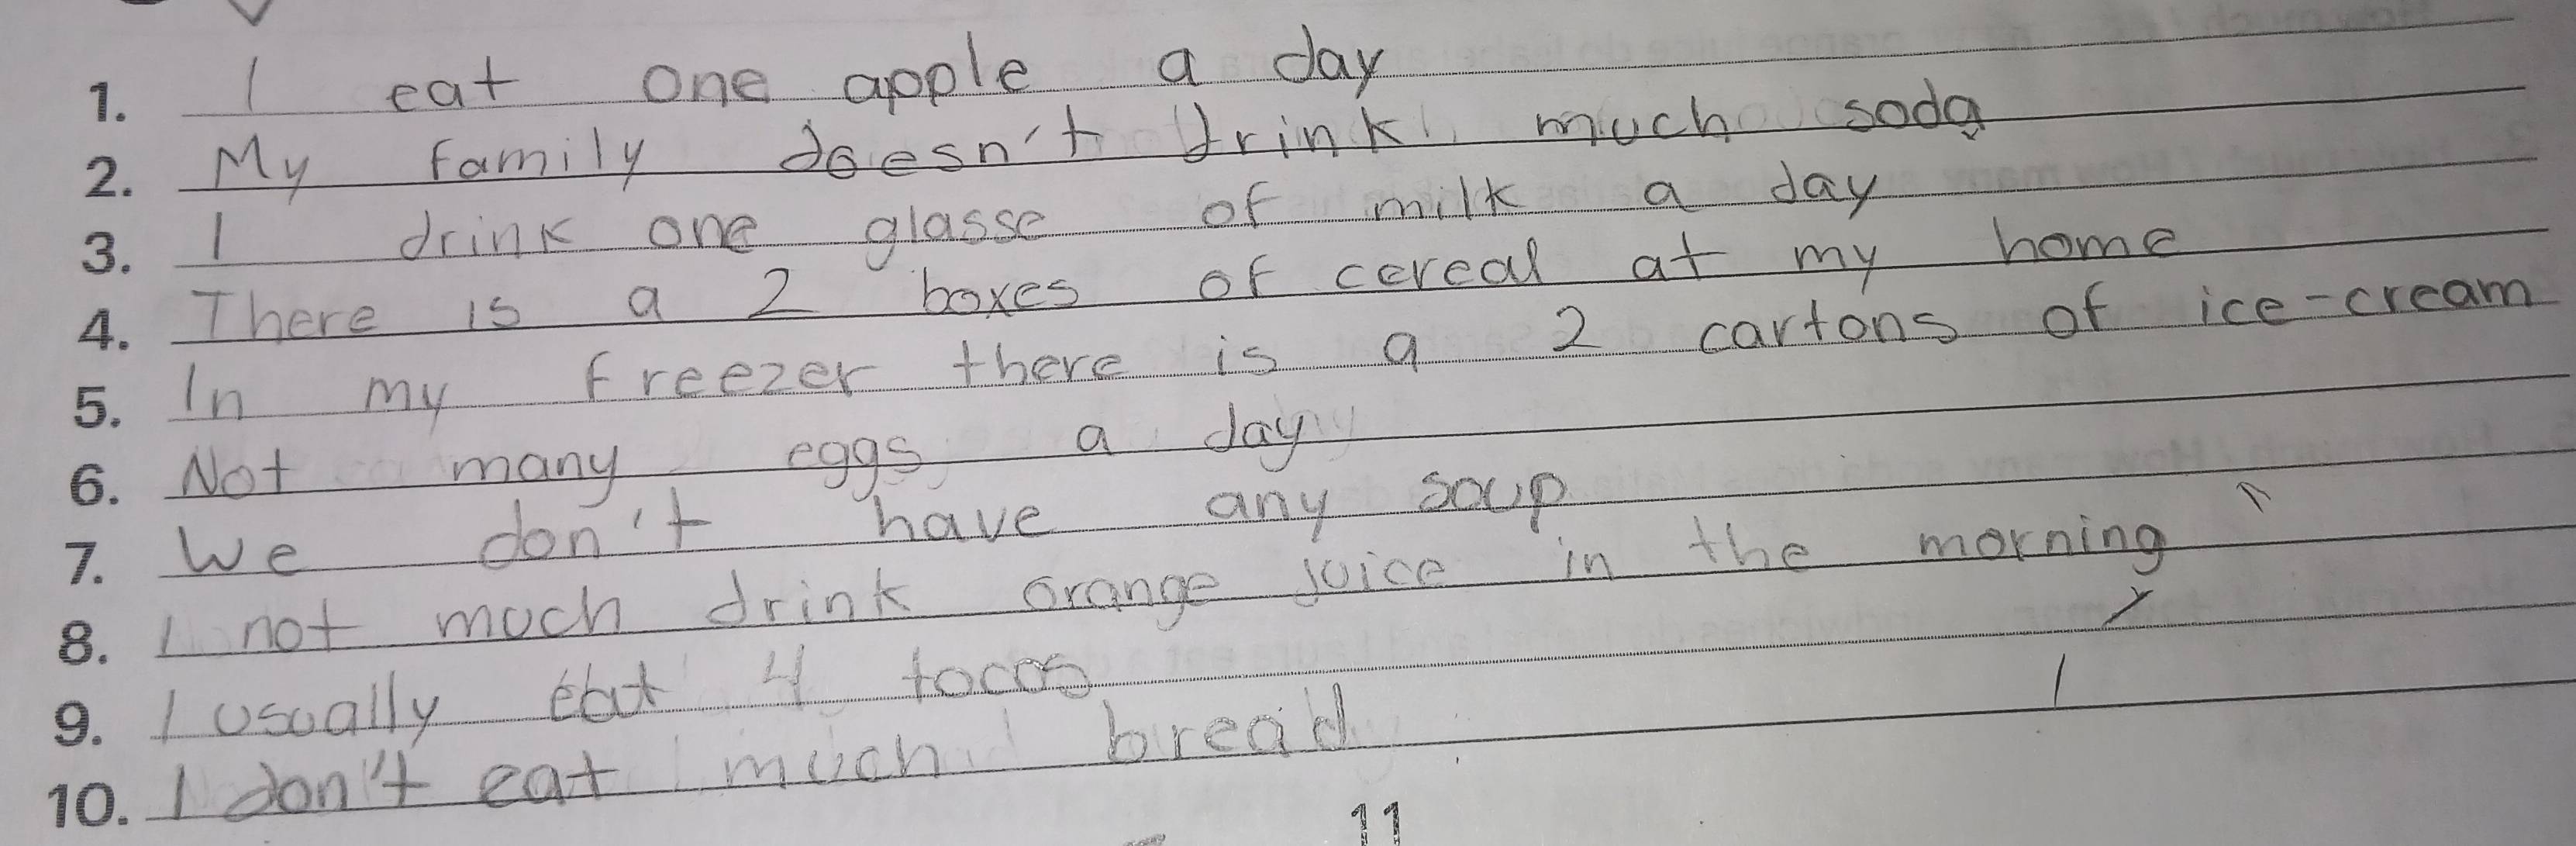 1. I eat one apple a day
2. My family doesn't drink much soda
3. I drink one glasse of milk a day
4. There is a 2 boxes of cereal at my home
5. In my freezer there is a 2 cartons of ice-cream
6. Not many eggs a day
7. We don't have any soup
8. I not much drink orange juice in the morning
9. I usually eat 4 tocos
10. I don't eat much bread
11